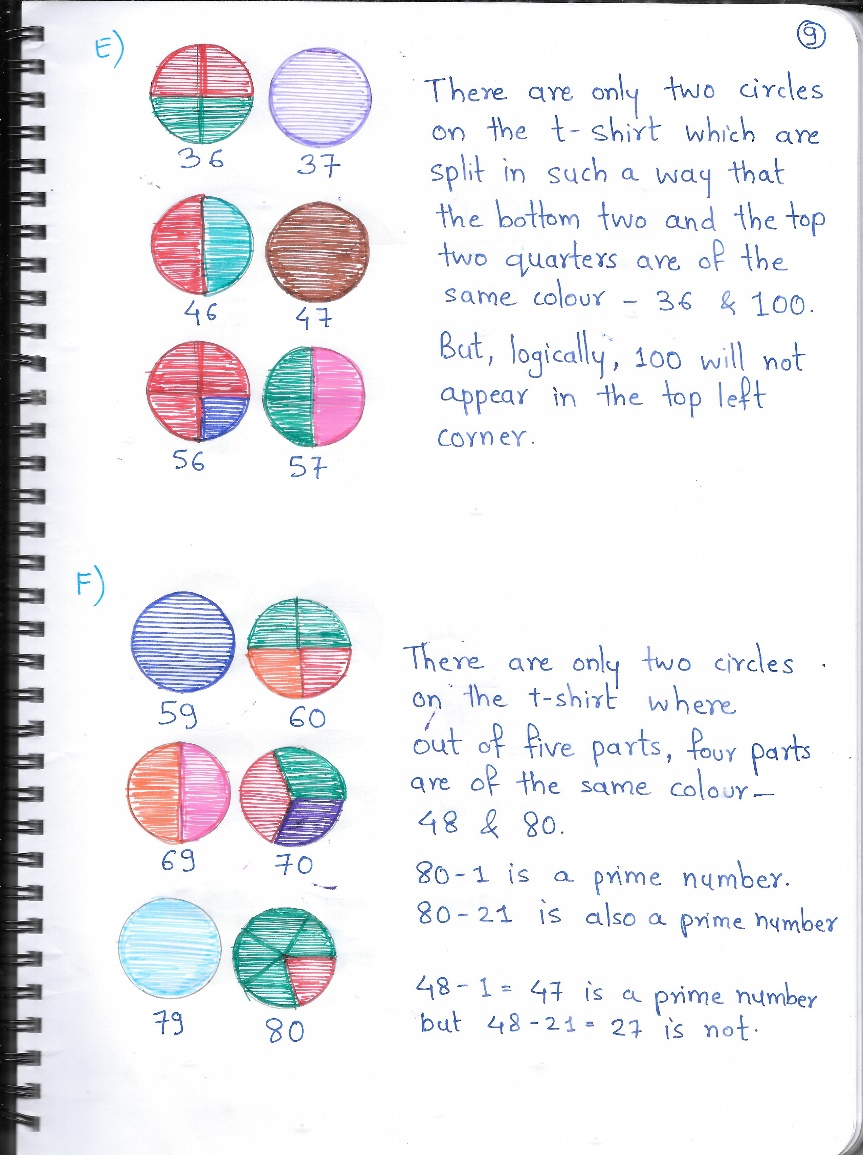 9
E)
36 37
46 47
56 57
There are only two circles
on the t-shirt which are
split in such a way that
the bottom two and the top
two quarters are of the
same colour - 36 & 100.
But, logically, 100 will not
appear in the top left
corner.
F)
59 60
69 70
79 80
There are only two circles
on the t-shirt where
out of five parts, four parts
are of the same colour-
48 & 80.
80-1 is a prime number.
80-21 is also a prime number
48-1= 47 is a prime number
but 48-21= 27 is not.